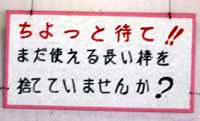 ちよっと待て!!
まだ使える長い枠を
捨てていませんか?